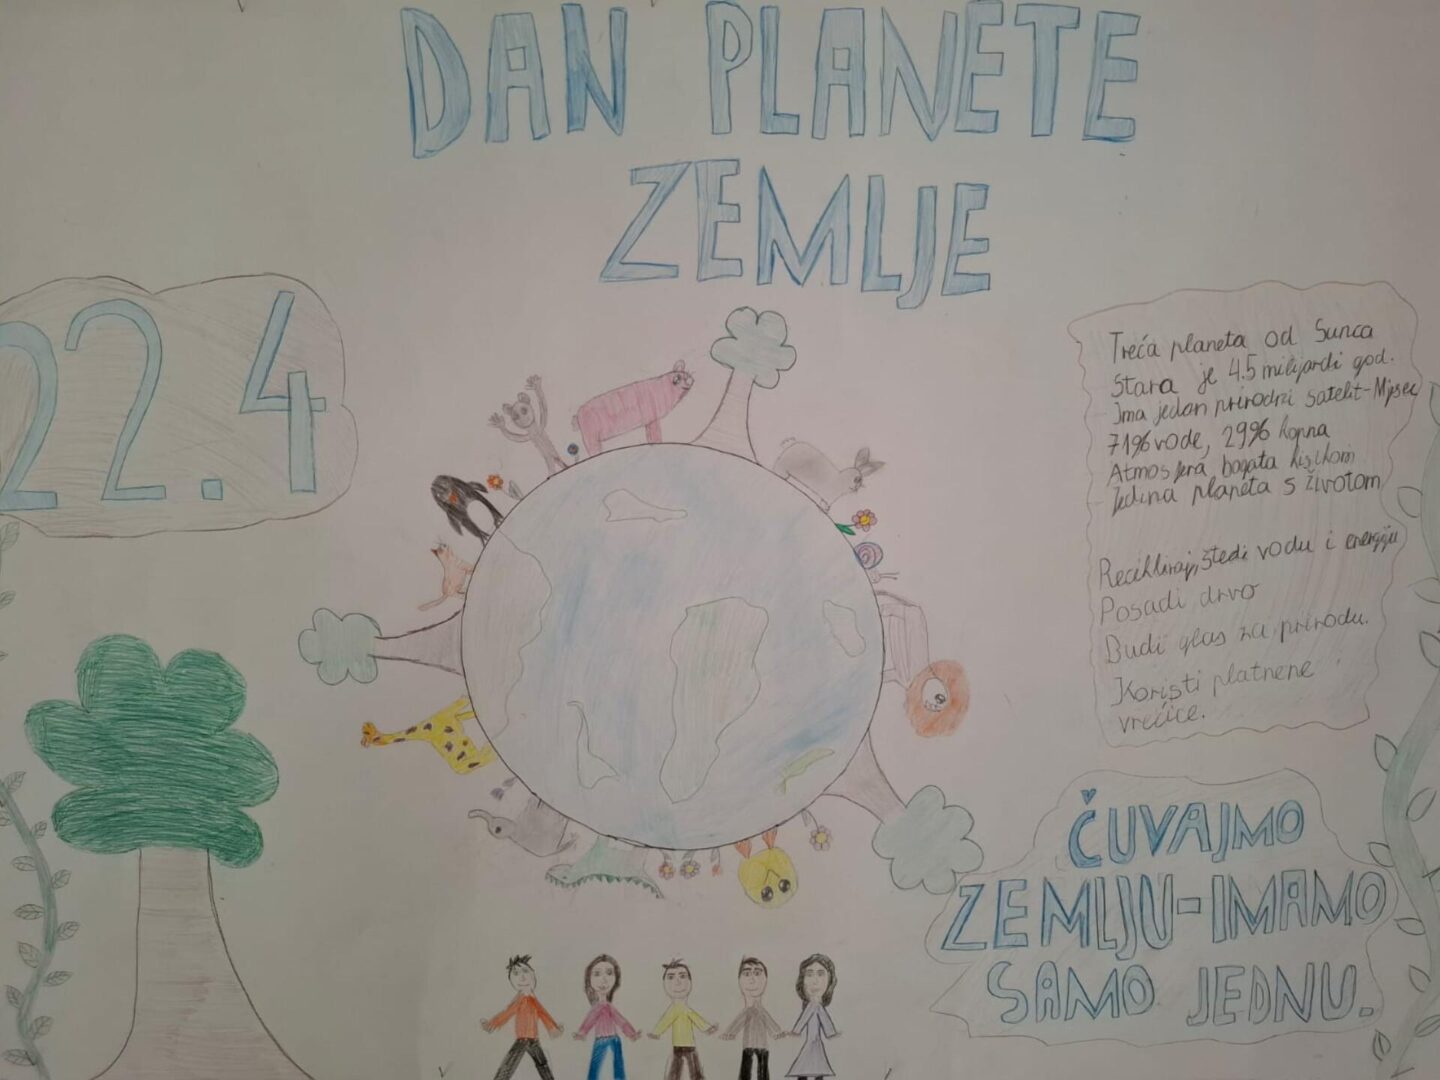 DAN PLANETE
ZEMLJE
22.4
Treća planeta od Sunca
Stara je 4.5 milijardi god.
Ima jedan prirodni satelit-Mjesec
71% vode, 29% kopna
Atmosfera bogata kisikom
Jedina planeta s životom
Recikliraj, štedi vodu i energiju
Posadi drvo
Budi glas za prirodu.
Koristi platnene
vrećice.
ČUVAJMO
ZEMLJU-IMAMO
SAMO JEDNU.